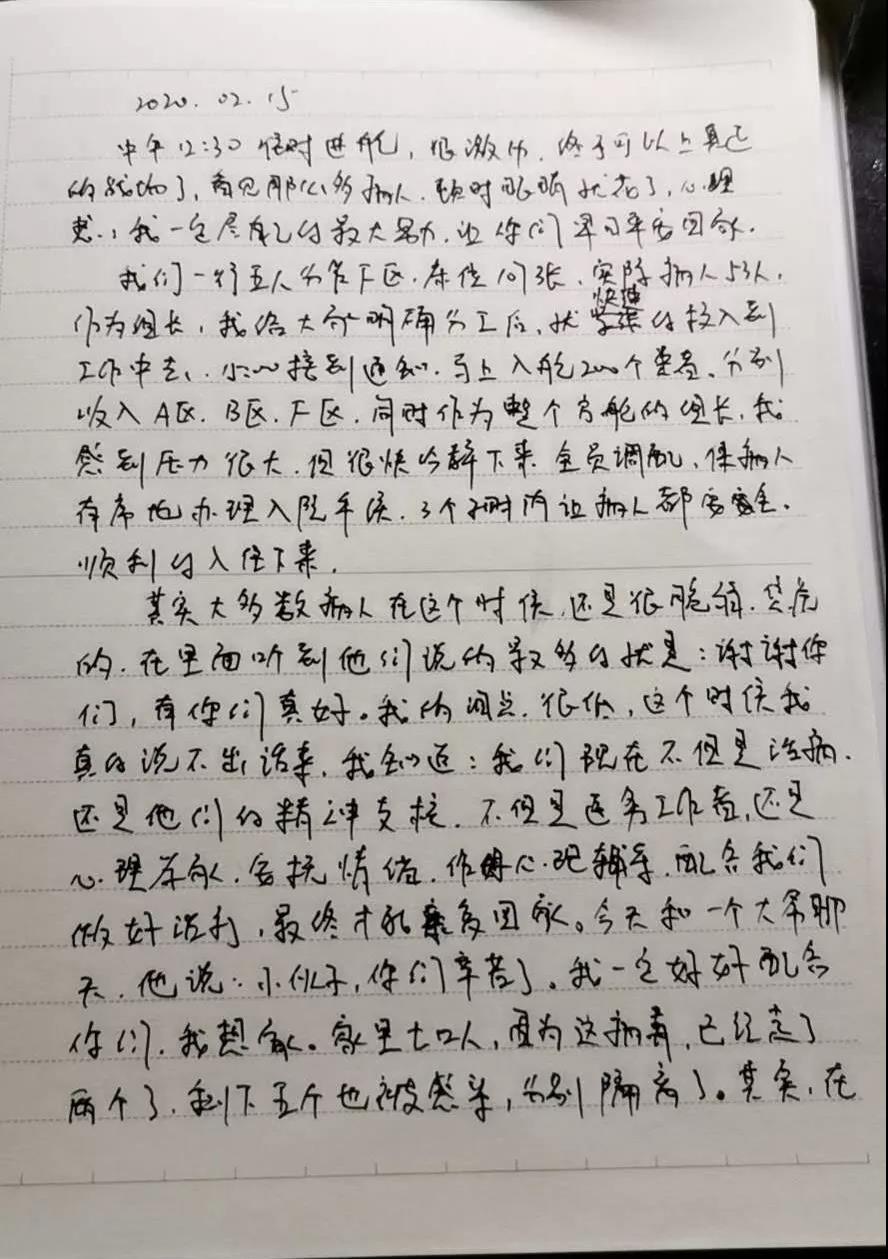 2020.02.15
中午12:30准时进舱,很激动,终于可以上真正
的战场了,看见那么多病人,顿时眼眶就花了,心理
想:我一定尽自己的最大努力,让你们早日平安回家.
我们一行五人分管F区.床位107张,实际病人53人.
作为组长,我给大家明确分工后,就快速的投入到
工作中去.小心接到通知.马上入舱200个患者.分别
收入A区.B区.F区.同时作为整个方舱的组长,我
感到压力很大.但很快冷静下来.全员调配,保病人
有序地办理入院手续.3个小时内让病人都安全.
顺利的入住下来.
其实大多数病人在这个时候,还是很脆弱.焦虑
的.在里面听到他们说的最多的就是:谢谢你
们,有你们真好。我的泪点很低,这个时候我
真的说不出话来,我知道:我们现在不但是治病.
还是他们的精神支柱.不但是医务工作者,还是
心理专家.安抚情绪.作好心理辅导.配合我们
做好治疗,最终才能康复回家。今天和一个大爷聊
天.他说:小伙子,你们辛苦了。我一定好好配合
你们.我想家。家里七口人,因为这病毒,已经走了
两个了.剩下五个也被感染,分别隔离了。其实,在